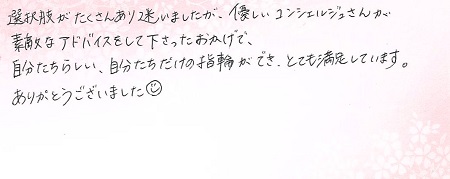 選択肢がたくさんあり迷いましたが、優しいコンシェルジュさんが
素敵なアドバイスをして下さったおかげで、
自分たちらしい、自分たちだけの指輪ができ、とても満足しています。
ありがとうございました☺